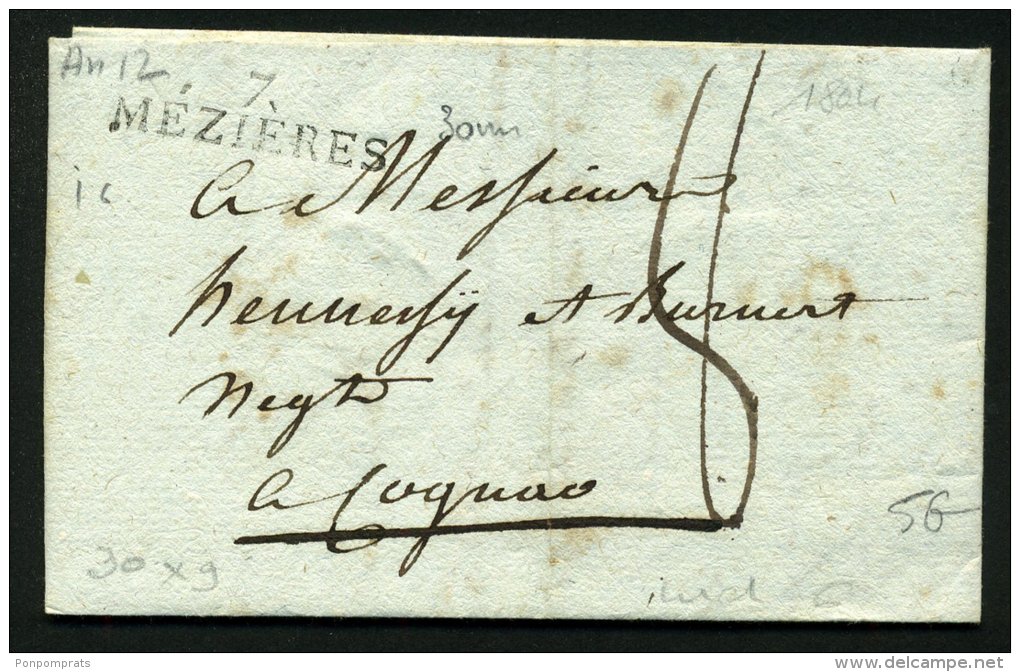 An 12
1804
7
MÉZIÈRES
30mm
a Messieurs
hennessÿ et Burnert
Negts
a Cognac
56
30 x 9
Ponpomprats
www.delcampe.net